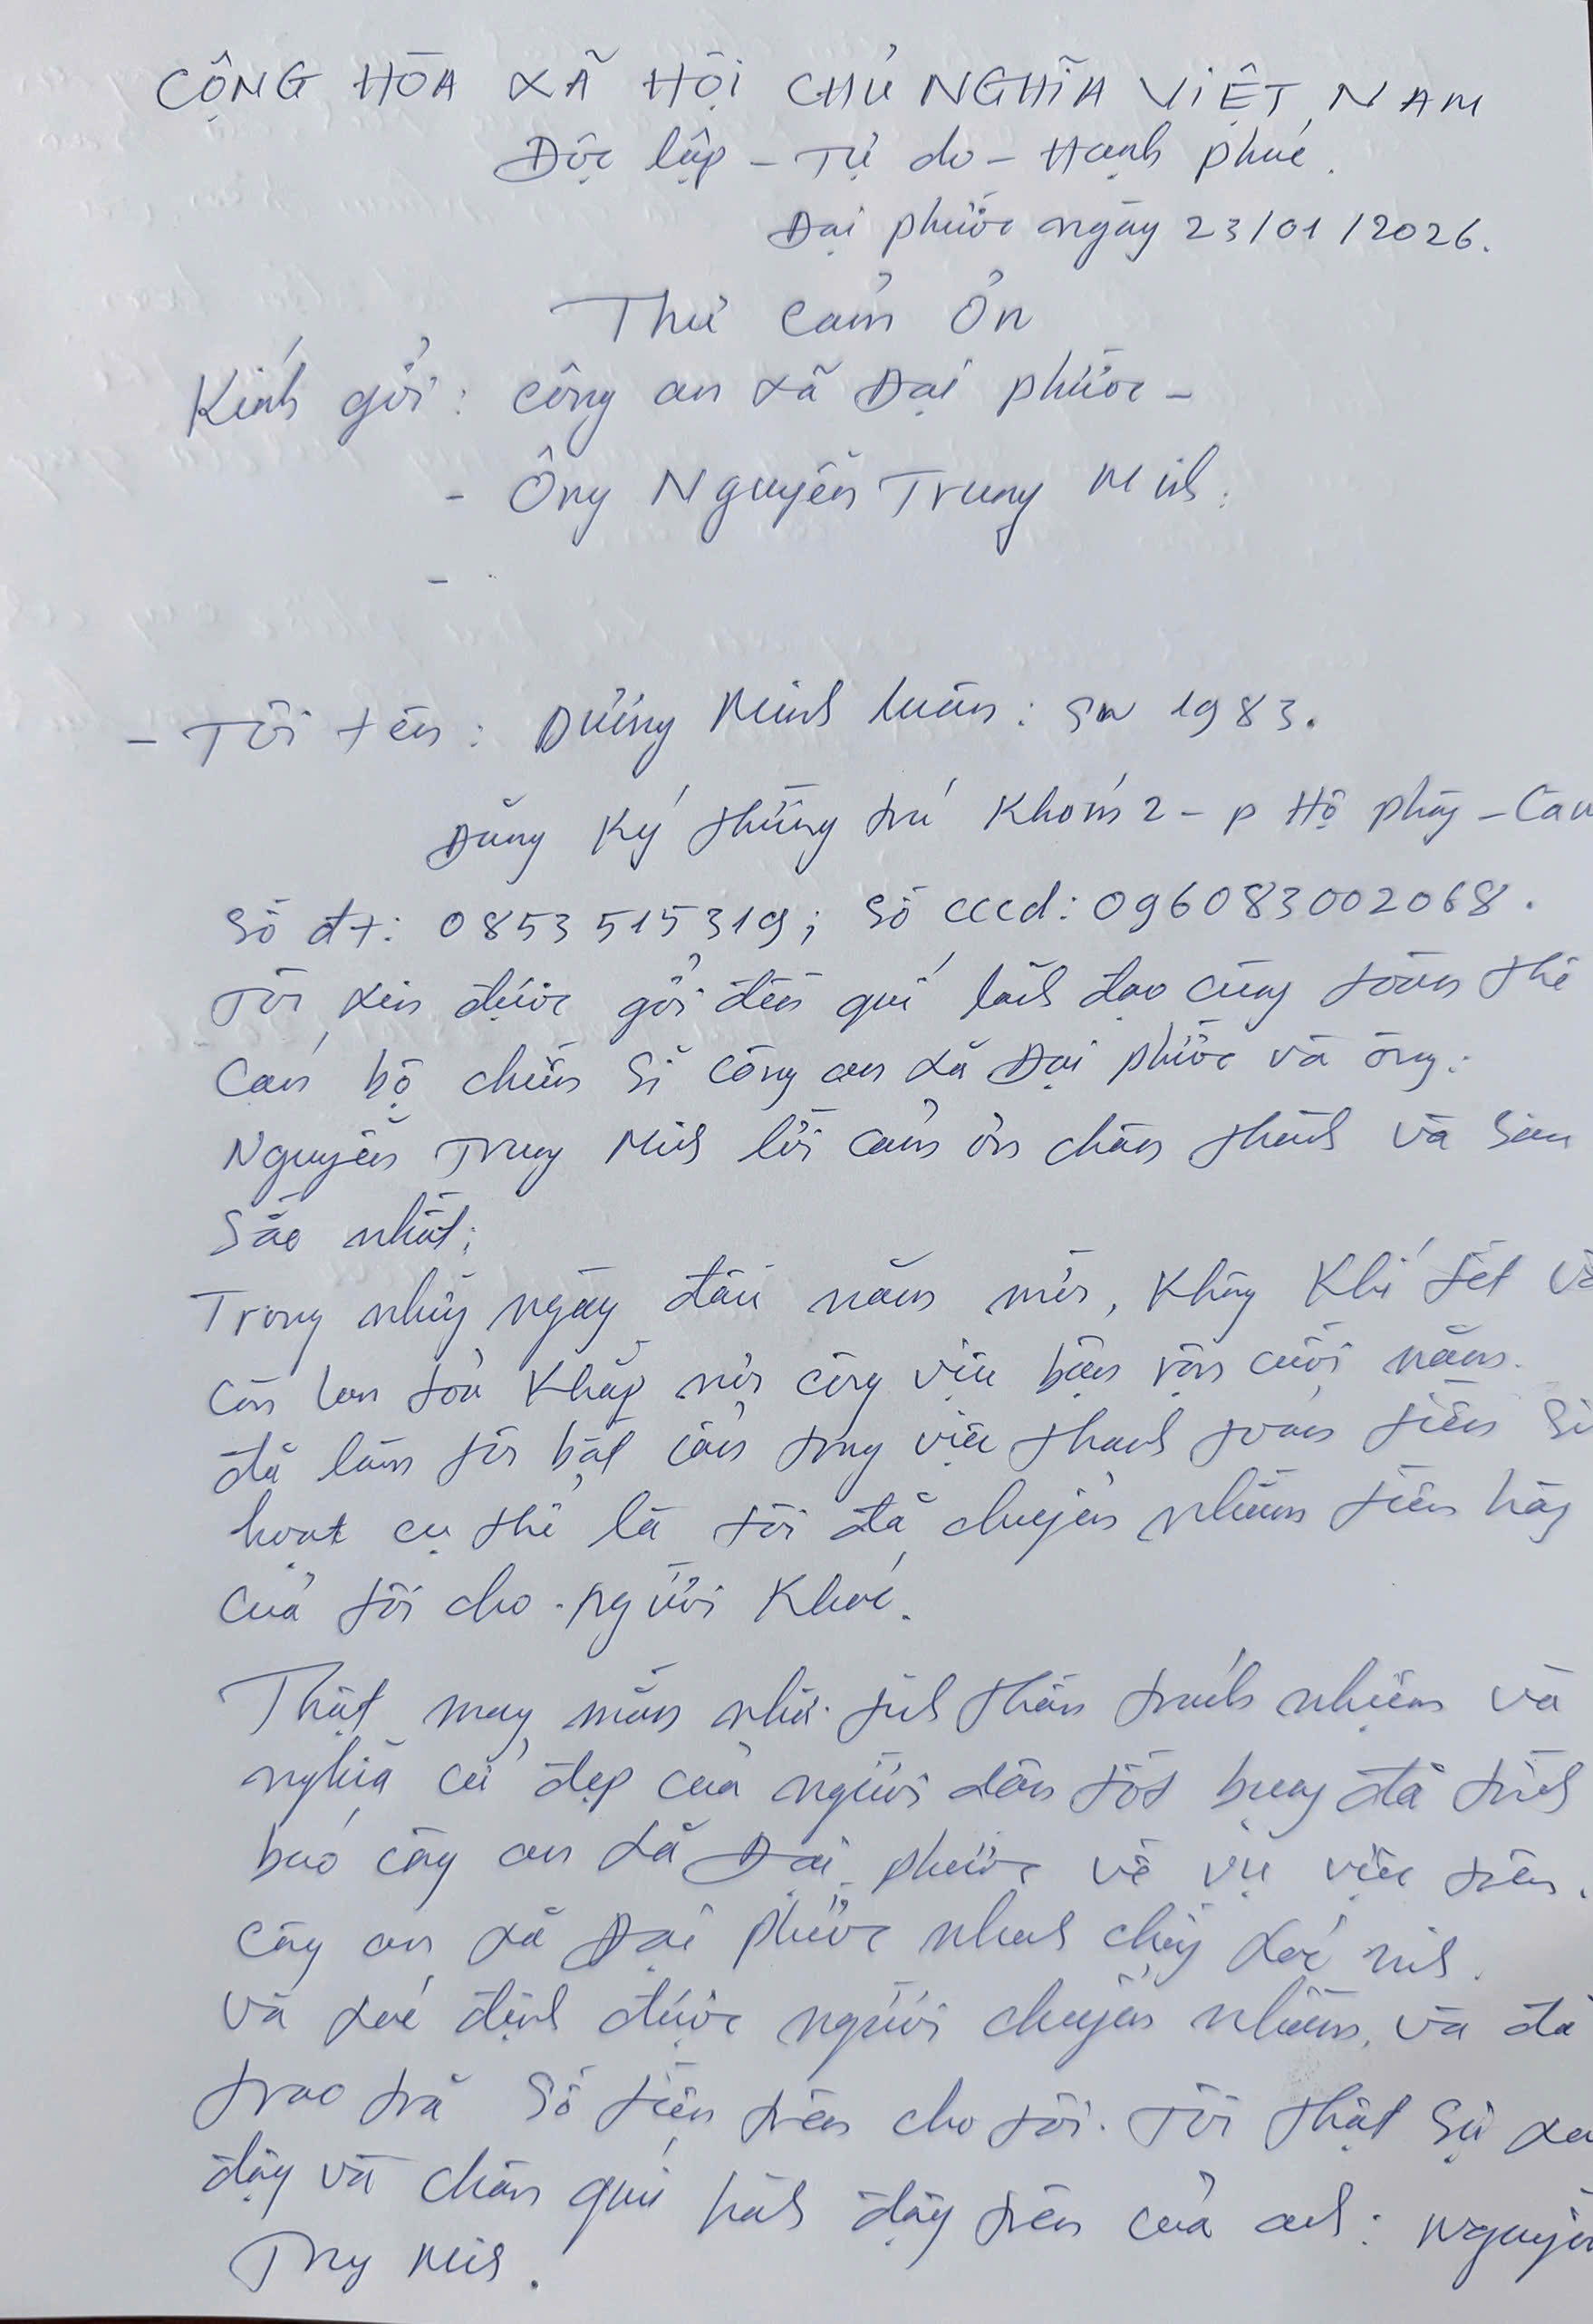 CỘNG HÒA XÃ HỘI CHỦ NGHĨA VIỆT NAM
Độc lập - Tự do - Hạnh phúc.
Đại phước ngày 23/01/2026.
Thư cảm ơn
Kính gởi: công an xã Đại phước -
- Ông Nguyễn Trung Minh:
-
- Tôi tên: Dương Minh Luân: SN 1983.
Đăng ký thường trú Khóm 2 - p Hộ phòng - Cà
Số đt: 0853515319; Số cccd: 096083002068.
Tôi xin được gởi đến quí lãnh đạo cùng toàn thể
Cán bộ chiến sĩ công an xã Đại phước và ông:
Nguyễn Trung Minh lời cảm ơn chân thành và sâu
sắc nhất;
Trong những ngày đầu năm mới, không khí tết
còn lan tỏa khắp nơi công việc bận rộn cuối năm.
đã làm tôi bất cẩn trong việc thanh toán tiền
hoạt cụ thể là tôi đã chuyển nhầm tiền hàng
của tôi cho người khác.
Thật may mắn nhờ tinh thần trách nhiệm và
nghĩa cử đẹp của người dân tốt bụng đã trình
báo công an xã Đại phước về vụ việc trên.
Công an xã Đại phước nhanh chóng xác minh.
và xác định được người chuyển nhầm, và đã
trao trả số tiền trên cho tôi. Tôi thật sự
động và chân quí hành động trên của anh: Nguyễn
Trung Minh.